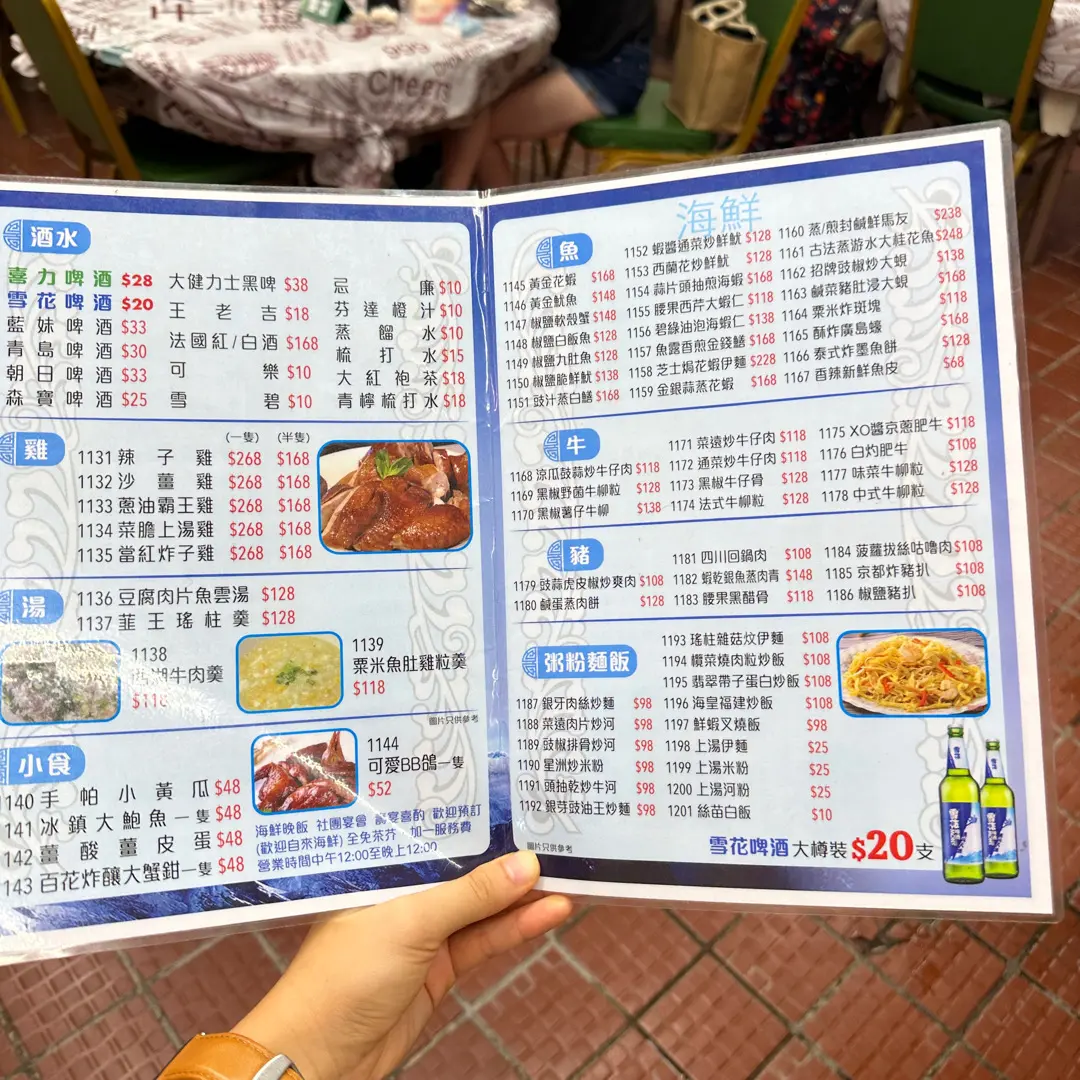 Cheers
酒水
喜力啤酒 $28
雪花啤酒 $20
藍妹啤酒 $33
青島啤酒 $30
朝日啤酒 $33
森寶啤酒 $25
大健力士黑啤 $38
王老吉 $18
法國紅/白酒 $168
可樂 $10
雪碧 $10
忌廉 $10
芬達橙汁 $10
蒸餾水 $10
梳打水 $15
大紅袍茶 $18
青檸梳打水 $18
雞
(一隻) (半隻)
1131 辣子雞 $268 $168
1132 沙薑雞 $268 $168
1133 蔥油霸王雞 $268 $168
1134 菜膽上湯雞 $268 $168
1135 當紅炸子雞 $268 $168
湯
1136 豆腐肉片魚雲湯 $128
1137 韮王瑤柱羹 $128
1138
西湖牛肉羹
$118
1139
粟米魚肚雞粒羹
$118
圖片只供參考
小食
1140 手帕小黃瓜 $48
141 冰鎮大鮑魚一隻 $48
142 薑酸薑皮蛋 $48
143 百花炸釀大蟹鉗一隻 $48
1144
可愛BB鴿一隻
$52
海鮮晚飯 社團宴會 壽宴喜酌 歡迎預訂
(歡迎自來海鮮) 全免茶芥 加一服務費
營業時間中午12:00至晚上12:00
海鮮
魚
1145 黃金花蝦 $168
1146 黃金魷魚 $148
1147 椒鹽軟殼蟹 $148
1148 椒鹽白飯魚 $128
1149 椒鹽九肚魚 $128
1150 椒鹽脆鮮魷 $138
1151 豉汁蒸白鱔 $168
1152 蝦醬通菜炒鮮魷 $128
1153 西蘭花炒鮮魷 $128
1154 蒜片頭抽煎海蝦 $168
1155 腰果西芹大蝦仁 $118
1156 碧綠油泡海蝦仁 $138
1157 魚露香煎金錢鱔 $168
1158 芝士焗花蝦伊麵 $228
1159 金銀蒜蒸花蝦 $168
1160 蒸/煎封鹹鮮馬友 $238
1161 古法蒸游水大桂花魚 $248
1162 招牌豉椒炒大蜆 $138
1163 鹹菜豬肚浸大蜆 $168
1164 粟米炸斑塊 $118
1165 酥炸廣島蠔 $168
1166 泰式炸墨魚餅 $128
1167 香辣新鮮魚皮 $68
牛
1168 涼瓜鼓蒜炒牛仔肉 $118
1169 黑椒野菌牛柳粒 $128
1170 黑椒薯仔牛柳 $138
1171 菜遠炒牛仔肉 $118
1172 通菜炒牛仔肉 $118
1173 黑椒牛仔骨 $128
1174 法式牛柳粒 $128
1175 XO醬京蔥肥牛 $118
1176 白灼肥牛 $108
1177 味菜牛柳粒 $128
1178 中式牛柳粒 $128
豬
1179 豉蒜虎皮椒炒爽肉 $108
1180 鹹蛋蒸肉餅 $128
1181 四川回鍋肉 $108
1182 蝦乾銀魚蒸肉青 $148
1183 腰果黑醋骨 $118
1184 菠蘿拔絲咕嚕肉 $108
1185 京都炸豬扒 $108
1186 椒鹽豬扒 $108
粥粉麵飯
1187 銀牙肉絲炒麵 $98
1188 菜遠肉片炒河 $98
1189 豉椒排骨炒河 $98
1190 星洲炒米粉 $98
1191 頭抽乾炒牛河 $98
1192 銀芽豉油王炒麵 $98
1193 瑤柱雜菇炆伊麵 $108
1194 欖菜燒肉粒炒飯 $108
1195 翡翠帶子蛋白炒飯 $108
1196 海皇福建炒飯 $108
1197 鮮蝦叉燒飯 $98
1198 上湯伊麵 $25
1199 上湯米粉 $25
1200 上湯河粉 $25
1201 絲苗白飯 $10
圖片只供參考
雪花啤酒 大樽裝 $20支